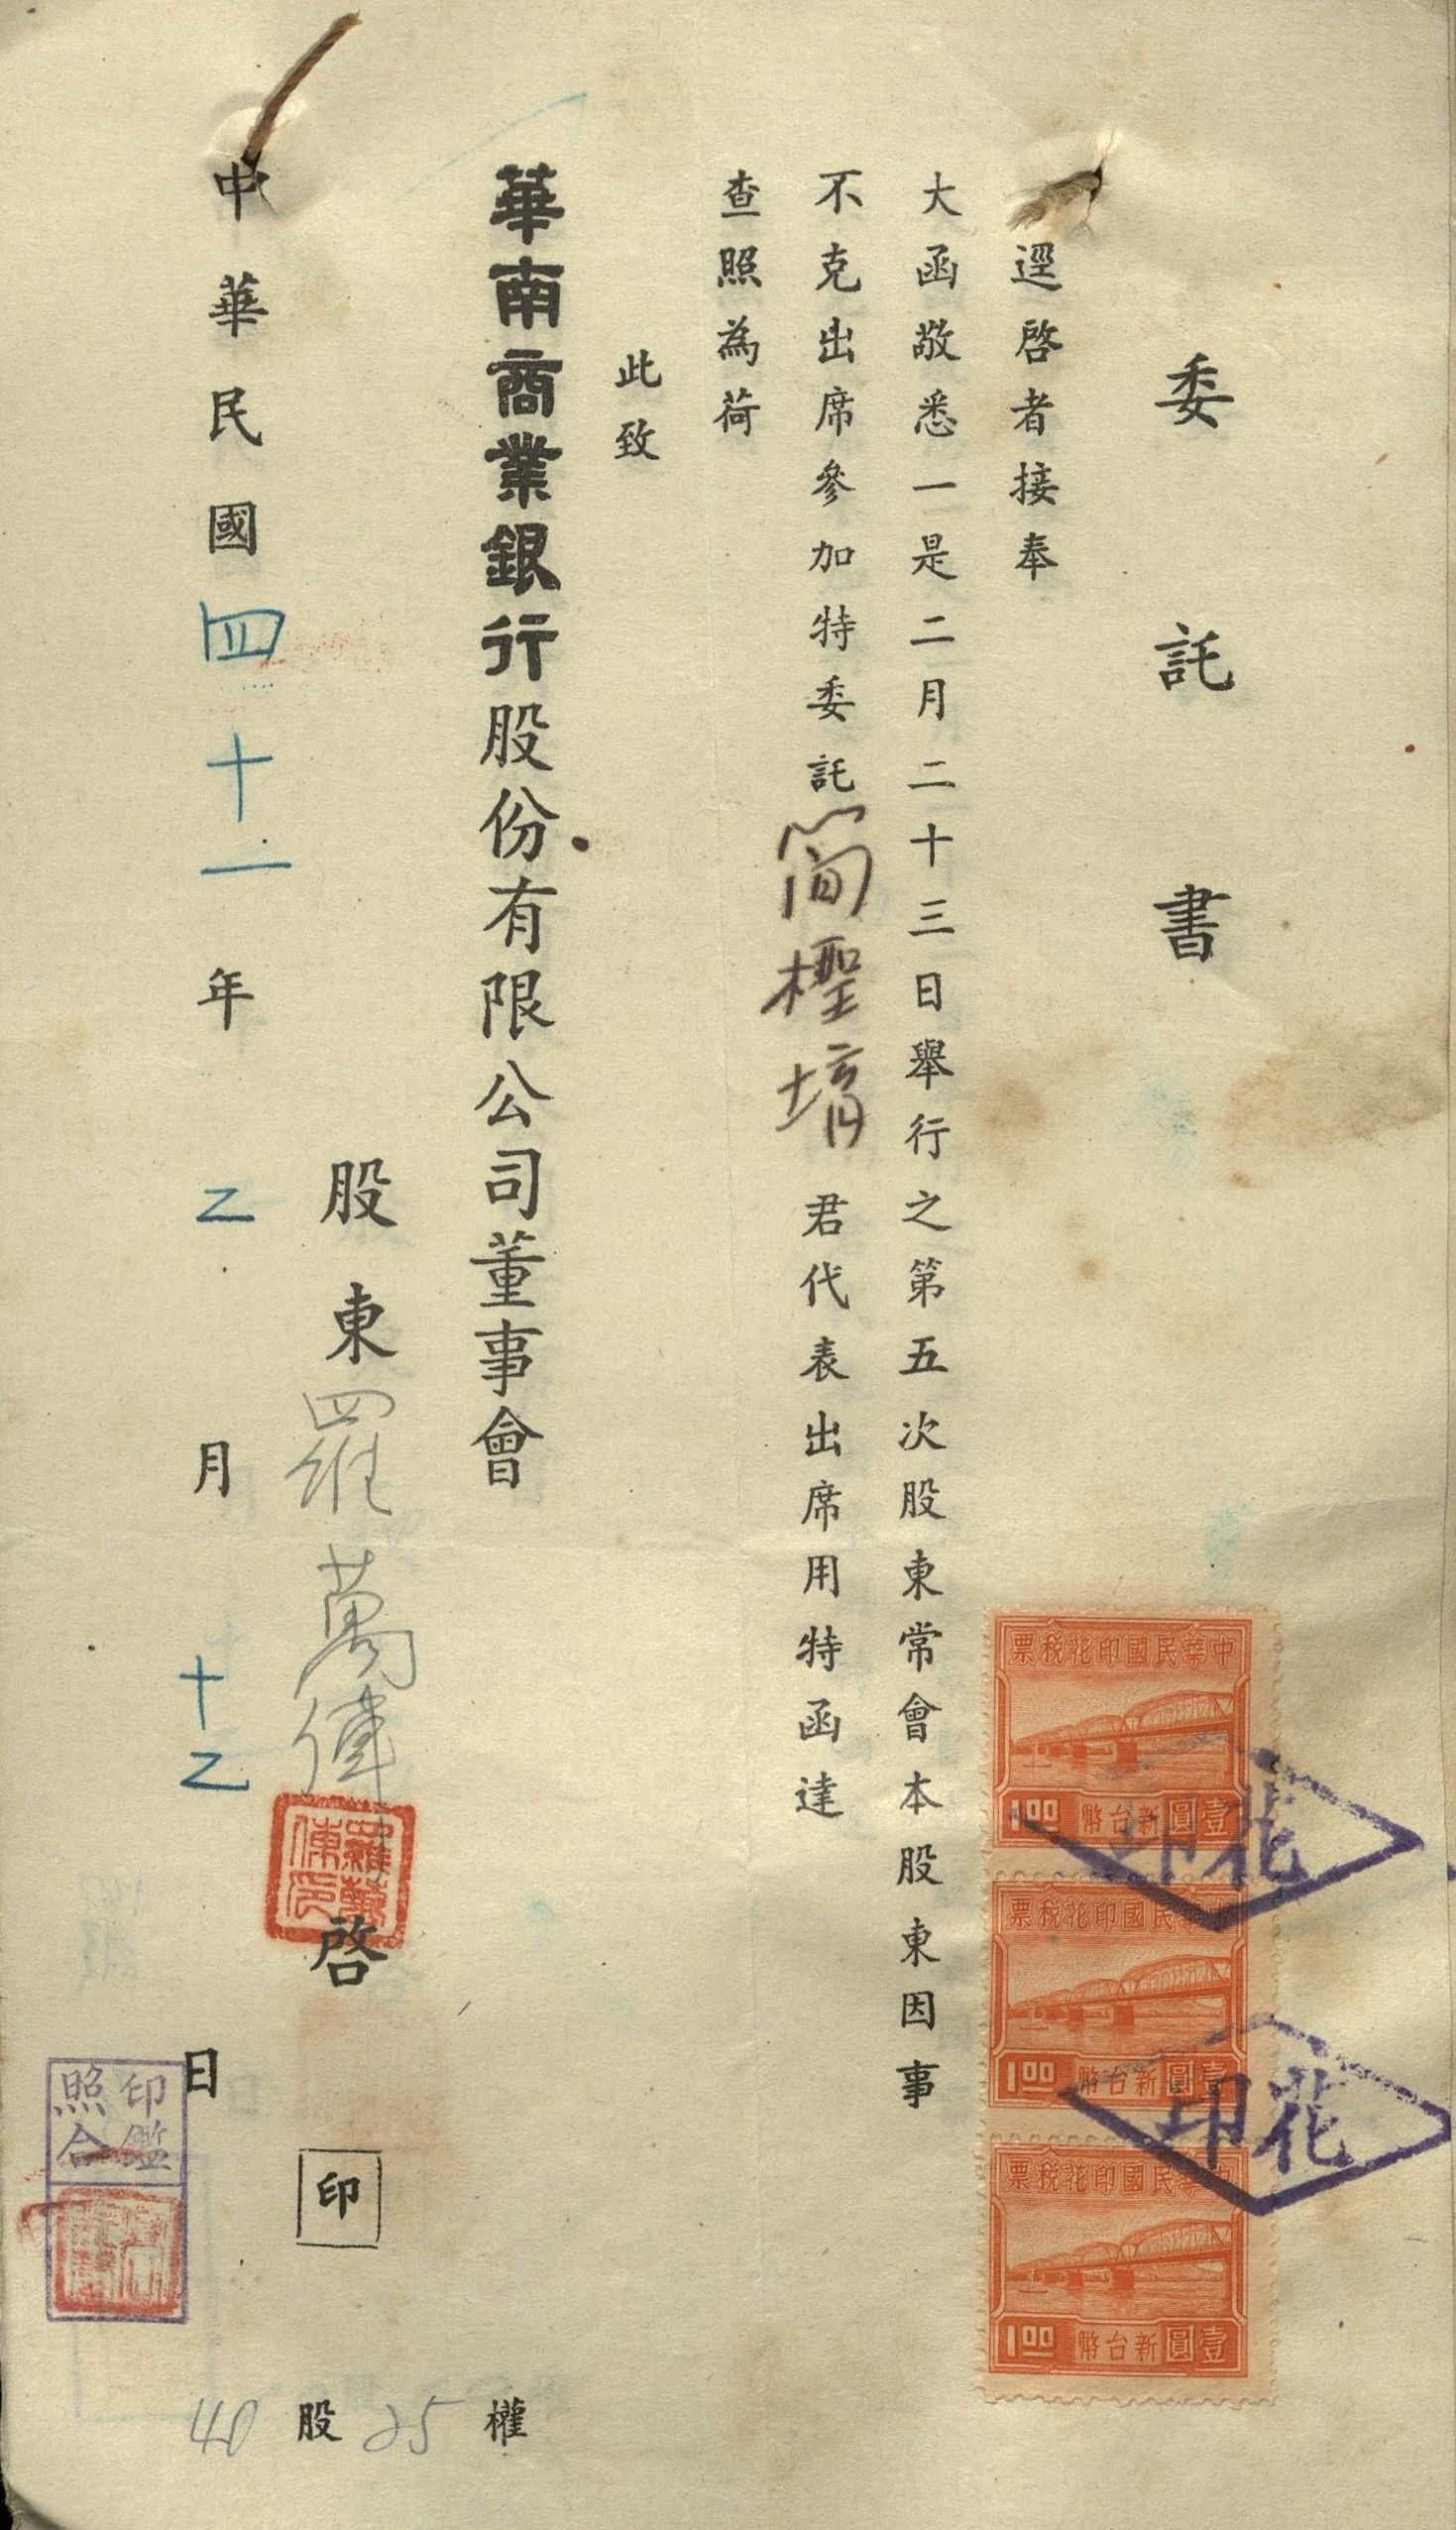 委託書
逕啓者接奉
大函敬悉一是二月二十三日舉行之第五次股東常會本股東因事
不克出席參加特委託簡檉堉君代表出席用特函達
查照為荷
此致
華南商業銀行股份有限公司董事會
股東羅萬俥啓
印
中華民國四十一年乙月十乙日
40股25權
中華民國印花稅票
1.00 新台幣壹圓
中華民國印花稅票
1.00 新台幣壹圓
中華民國印花稅票
1.00 新台幣壹圓
花印
花印
羅萬俥印
印鑑照合